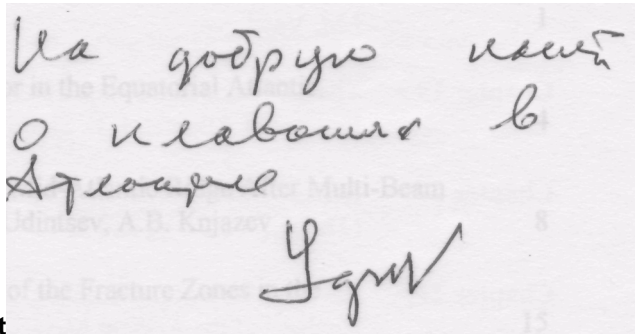 На добрую память
о плаваниях в
Атлантике
Удинцев
1
or in the Equatorial Atlantic
4
After Multi-Beam
Udintsev, A.B. Knjazev
8
of the Fracture Zones in the
15
t